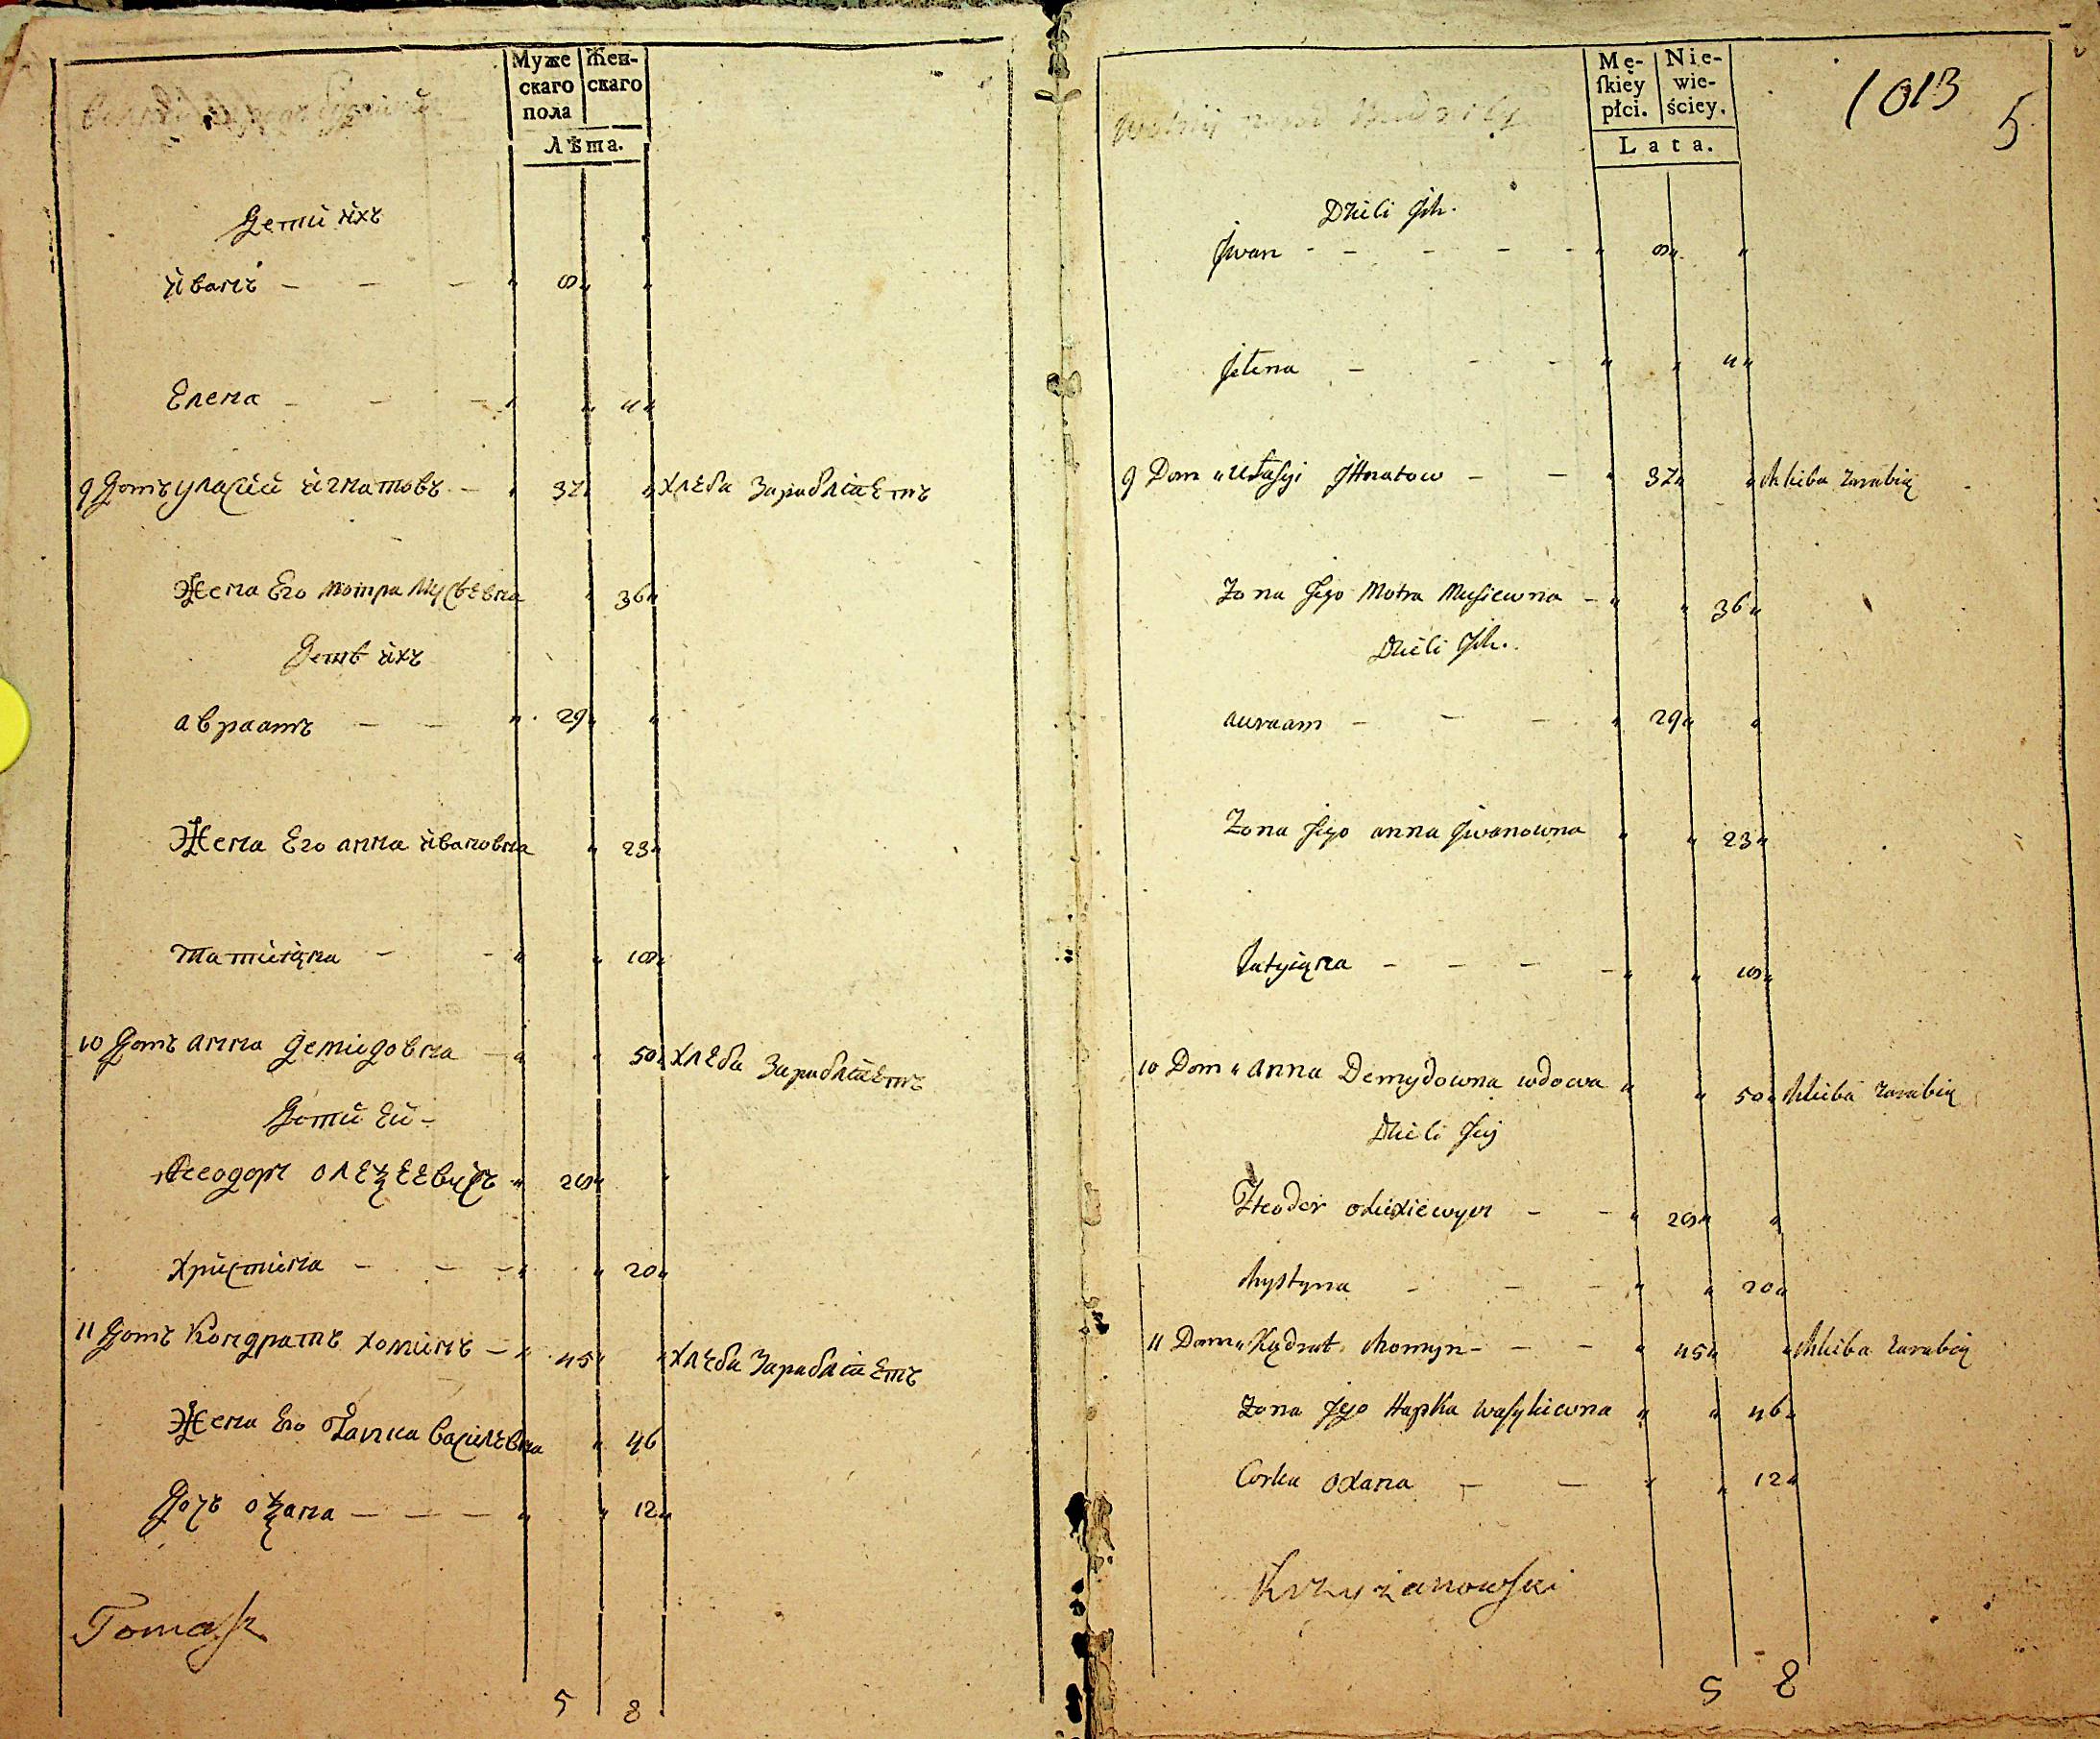 Муже Жен-
скаго скаго
пола
Лѣта.
Дети ихъ
Иванъ - - - " 8 " "
Елена - - - " " 4 "
9 Домъ Уласій Игнатовъ - " 37 " " хлеба зарабляетъ
Жена Его Мотра Мусѣевна " 36 "
Детѣ ихъ
Авраамъ - - " 29 " "
Жена Его Анна Ивановна " 23 "
Татіяна - - " " 10 "
10 Домъ Анна Демидовна - " " 50 " хлеба зарабляетъ
Дети Ей -
Ѳеодоръ Олеѯеевичъ " 20 " "
Христина - - - " " 20 "
11 Домъ Кондратъ Хоминъ - " 45 " " хлѣба зарабляетъ
Жена Его Гапка Василевна " 46
Дочь Оѯана - - - " " 12 "
Tomasz
5 8
Mę- Nie-
skiey wie-
płci. ściey.
Lata.
1013
5
Dzieci Jch.
Jwan - - - - - " 8 " "
Jełena - - - " " 4 "
9 Dom " Ułasyi JHnatow - - " 37 " " Chleba zarabia
Żona Jego Motra Musiewna - " " 36 "
Dzieci Jch.
Awraam - - - " 29 " "
Żona Jego Anna Jwanowna " " 23 "
Tatyjana - - - - " " 10 "
10 Dom " Anna Demydowna wdowa " " 50 " Chleba zarabia
Dzieci Jey
Fteodor Olexiewycz - - " 20 " "
Chrystyna - - - " " 20 "
11 Dom " Kądrat Chomyn - - - " 45 " " Chleba zarabia
Żona Jego Hapka Wasylewna " " 46 "
Corka Oxana - - " " 12 "
Krzyżanowski
5 8